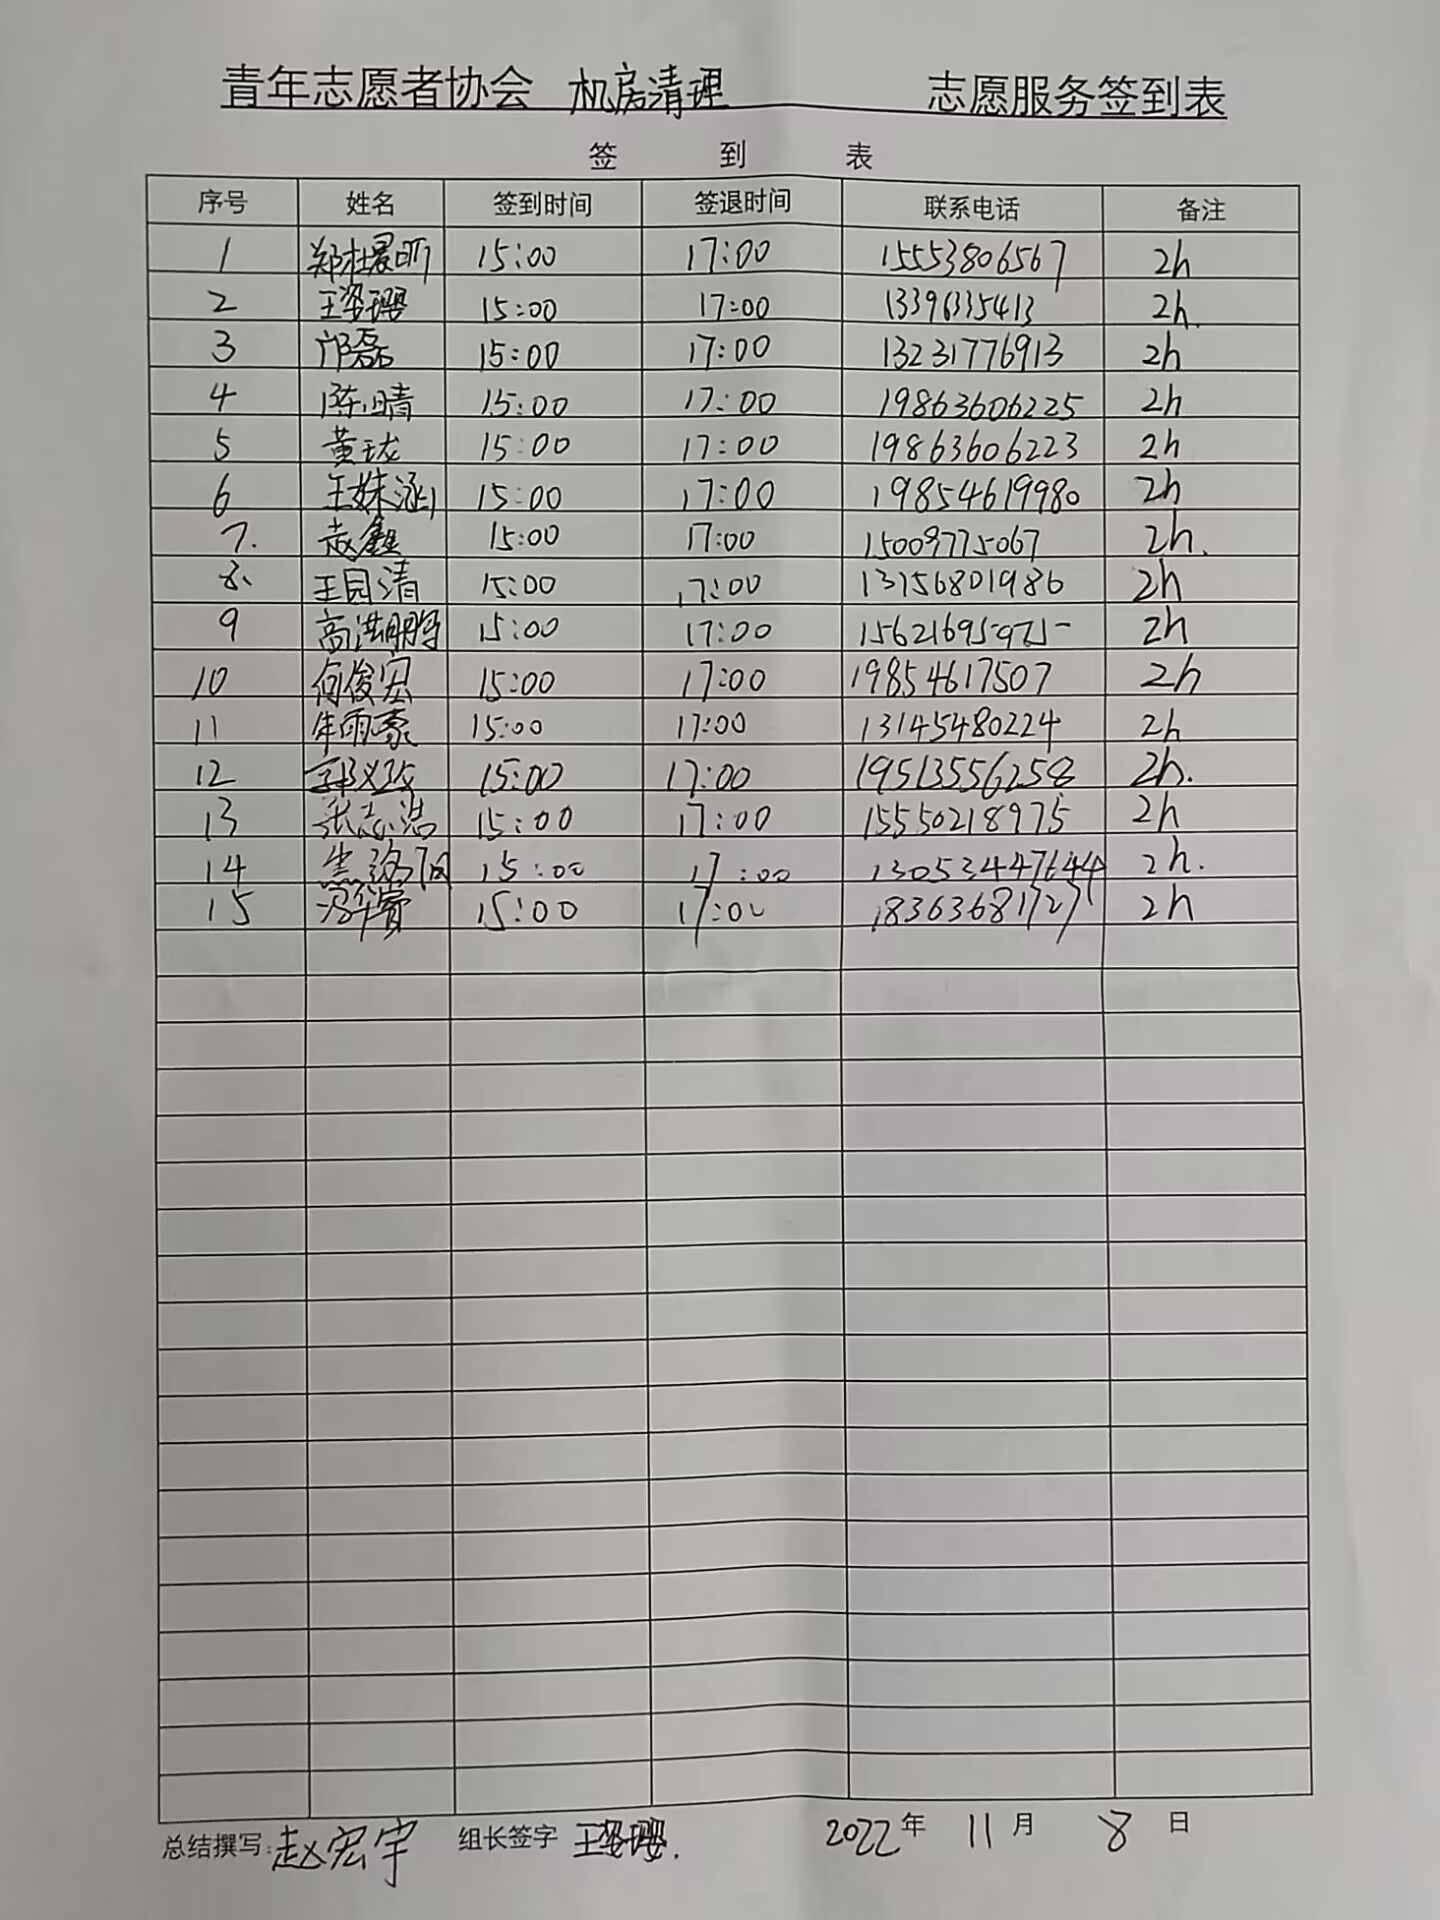 青年志愿者协会 机房清理 志愿服务签到表
签 到 表
序号 姓名 签到时间 签退时间 联系电话 备注
1 郑杜晨昕 15:00 17:00 15553806567 2h
2 王姿璎 15:00 17:00 13396335413 2h.
3 邝磊 15:00 17:00 13231776913 2h
4 陈晴 15:00 17:00 19863606225 2h
5 黄珑 15:00 17:00 19863606223 2h
6 王姝涵 15:00 17:00 19854619980 2h
7. 赵鑫 15:00 17:00 15009775067 2h.
8. 王园清 15:00 17:00 13156801986 2h
9 高洪鹏 15:00 17:00 15621695975 2h
10 何俊宏 15:00 17:00 19854617507 2h
11 牟雨豪 15:00 17:00 13145480224 2h
12 15:00 17:00 19513556258 2h.
13 张志浩 15:00 17:00 15550218975 2h
14 15:00 17:00 2h.
15 15:00 17:00 2h
总结撰写:赵宏宇 组长签字 王姿璎. 2022年 11月 8日